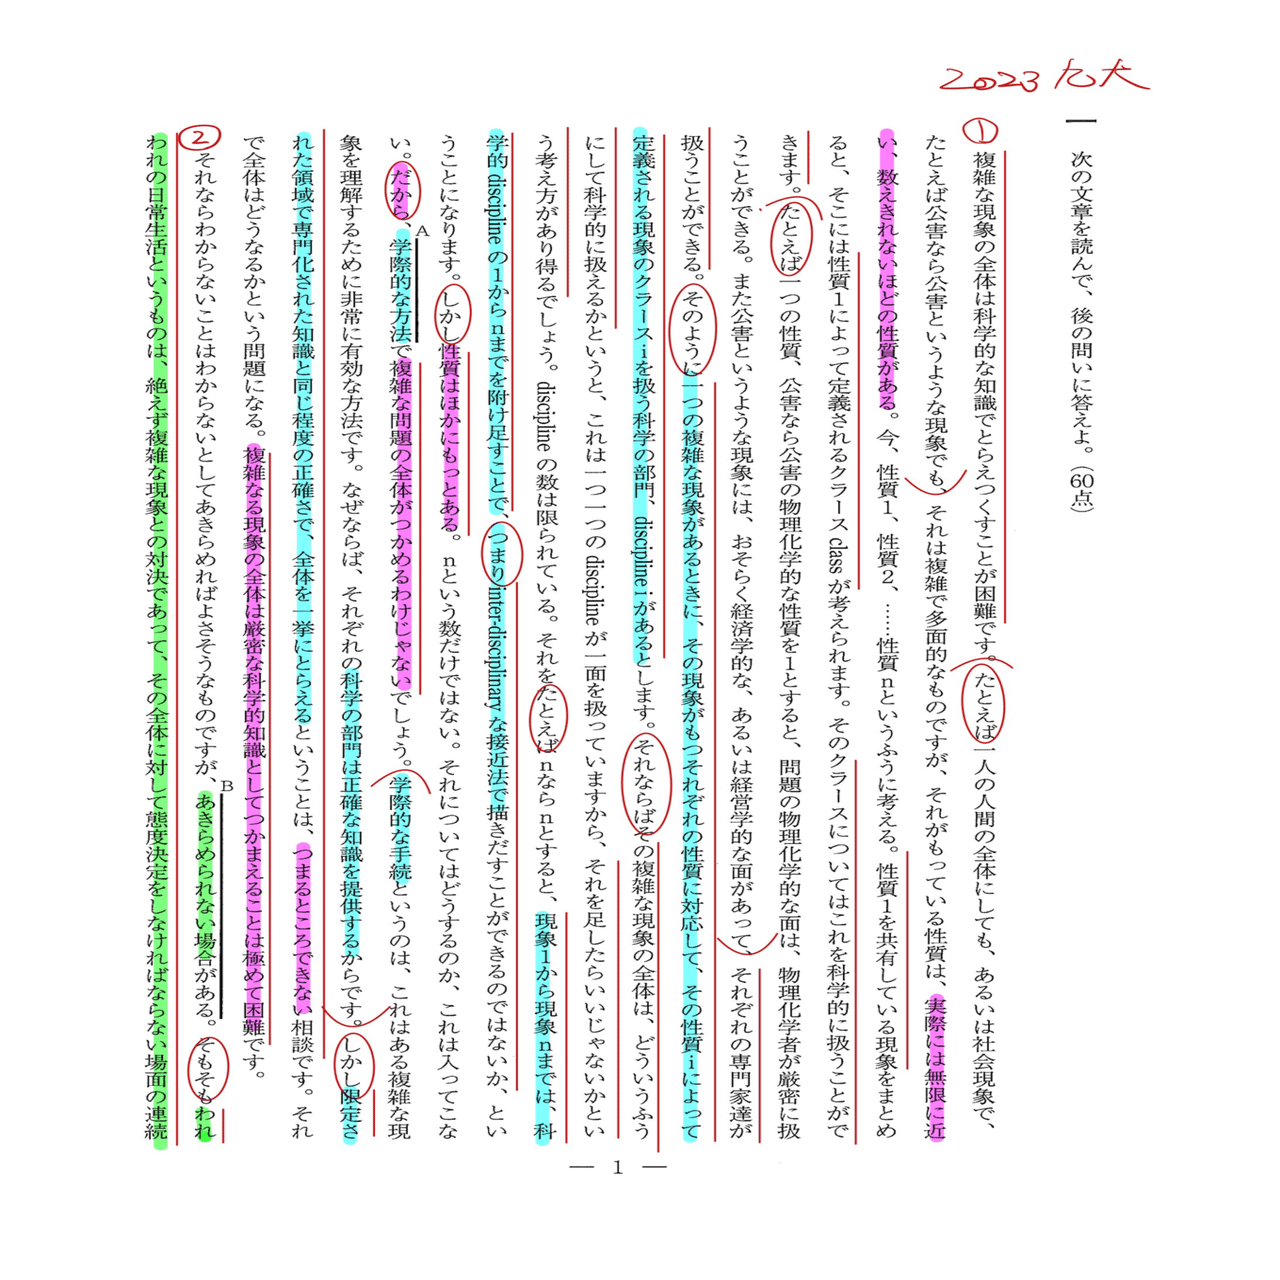 2023 九大
一 次の文章を読んで、後の問いに答えよ。(60点)
①
複雑な現象の全体は科学的な知識でとらえつくすことが困難です。たとえば一人の人間の全体にしても、あるいは社会現象で、
たとえば公害なら公害というような現象でも、それは複雑で多面的なものですが、それがもっている性質は、実際には無限に近
い、数えきれないほどの性質がある。今、性質1、性質2、……性質nというふうに考える。性質1を共有している現象をまとめ
ると、そこには性質1によって定義されるクラース class が考えられます。そのクラースについてはこれを科学的に扱うことがで
きます。たとえば一つの性質、公害なら公害の物理化学的な性質を1とすると、問題の物理化学的な面は、物理化学者が厳密に扱
うことができる。また公害というような現象には、おそらく経済学的な、あるいは経営学的な面があって、それぞれの専門家達が
扱うことができる。そのように一つの複雑な現象があるときに、その現象がもつそれぞれの性質に対応して、その性質iによって
定義される現象のクラースiを扱う科学の部門、discipline i があるとします。それならばその複雑な現象の全体は、どういうふう
にして科学的に扱えるかというと、これは一つ一つの discipline が一面を扱っていますから、それを足したらいいじゃないかとい
う考え方があり得るでしょう。discipline の数は限られている。それをたとえばnならnとすると、現象1から現象nまでは、科
学的 discipline の1からnまでを附け足すことで、つまり inter-disciplinary な接近法で描きだすことができるのではないか、とい
うことになります。しかし性質はほかにもっとある。nという数だけではない。それについてはどうするのか、これは入ってこな
い。だから、学際的な方法で複雑な問題の全体がつかめるわけじゃないでしょう。学際的な手続というのは、これはある複雑な現
A
象を理解するために非常に有効な方法です。なぜならば、それぞれの科学の部門は正確な知識を提供するからです。しかし限定さ
れた領域で専門化された知識と同じ程度の正確さで、全体を一挙にとらえるということは、つまるところできない相談です。それ
で全体はどうなるかという問題になる。複雑なる現象の全体は厳密な科学的知識としてつかまえることは極めて困難です。
②
それならわからないことはわからないとしてあきらめればよさそうなものですが、あきらめられない場合がある。そもそもわれ
B
われの日常生活というものは、絶えず複雑な現象との対決であって、その全体に対して態度決定をしなければならない場面の連続
— 1 —